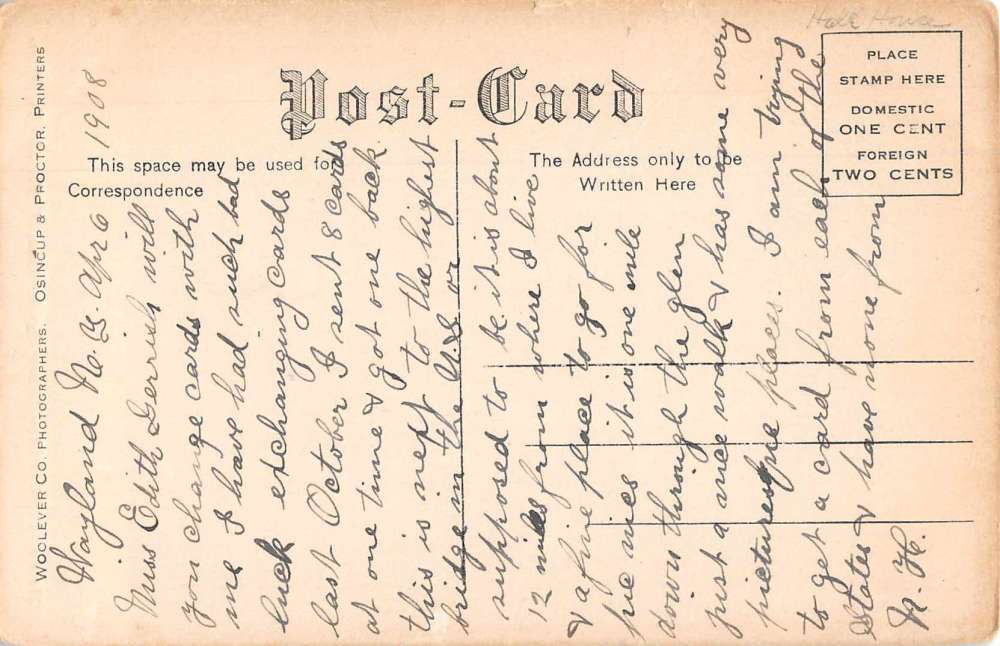 Hall House
Post-Card
PLACE
STAMP HERE
DOMESTIC
ONE CENT
FOREIGN
TWO CENTS
This space may be used for
Correspondence
The Address only to be
Written Here
WOOLEVER CO. PHOTOGRAPHERS. OSINCUP & PROCTOR, PRINTERS
Wayland N. Y. Apr 6 1908
Miss Edith Gerrish will
you change cards with
me I have had such bad
luck exchanging cards
last October I sent 8 cards
at one time & got one back.
this is next to the highest
bridge in the U.S or
supposed to be it is about
12 miles from where I live
& a fine place to go for
pic nics it is one mile
down through the glen
just a nice walk & has some very
picturesque places. I am trying
to get a card from each of the
States & have none from
N. H.